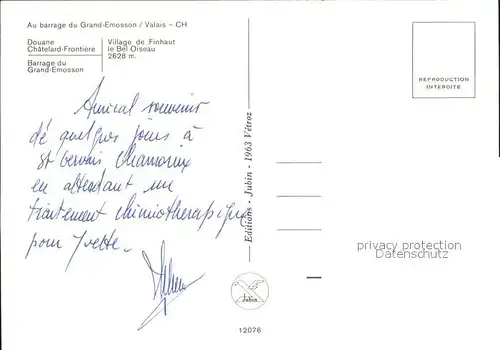 Au barrage du Grand-Emosson / Valais - CH
Douane
Châtelard-Frontière
Barrage du
Grand-Emosson
Village de Finhaut
le Bel Oiseau
2628 m.
Amical souvenir
dé quelques jours à
St Gervais Chamonix
en attendant un
traitement chimiothérapique
pour Yvette.
Editions - Jubin - 1963 Vétroz
Jubin
12076
REPRODUCTION
INTERDITE
privacy protection
Datenschutz